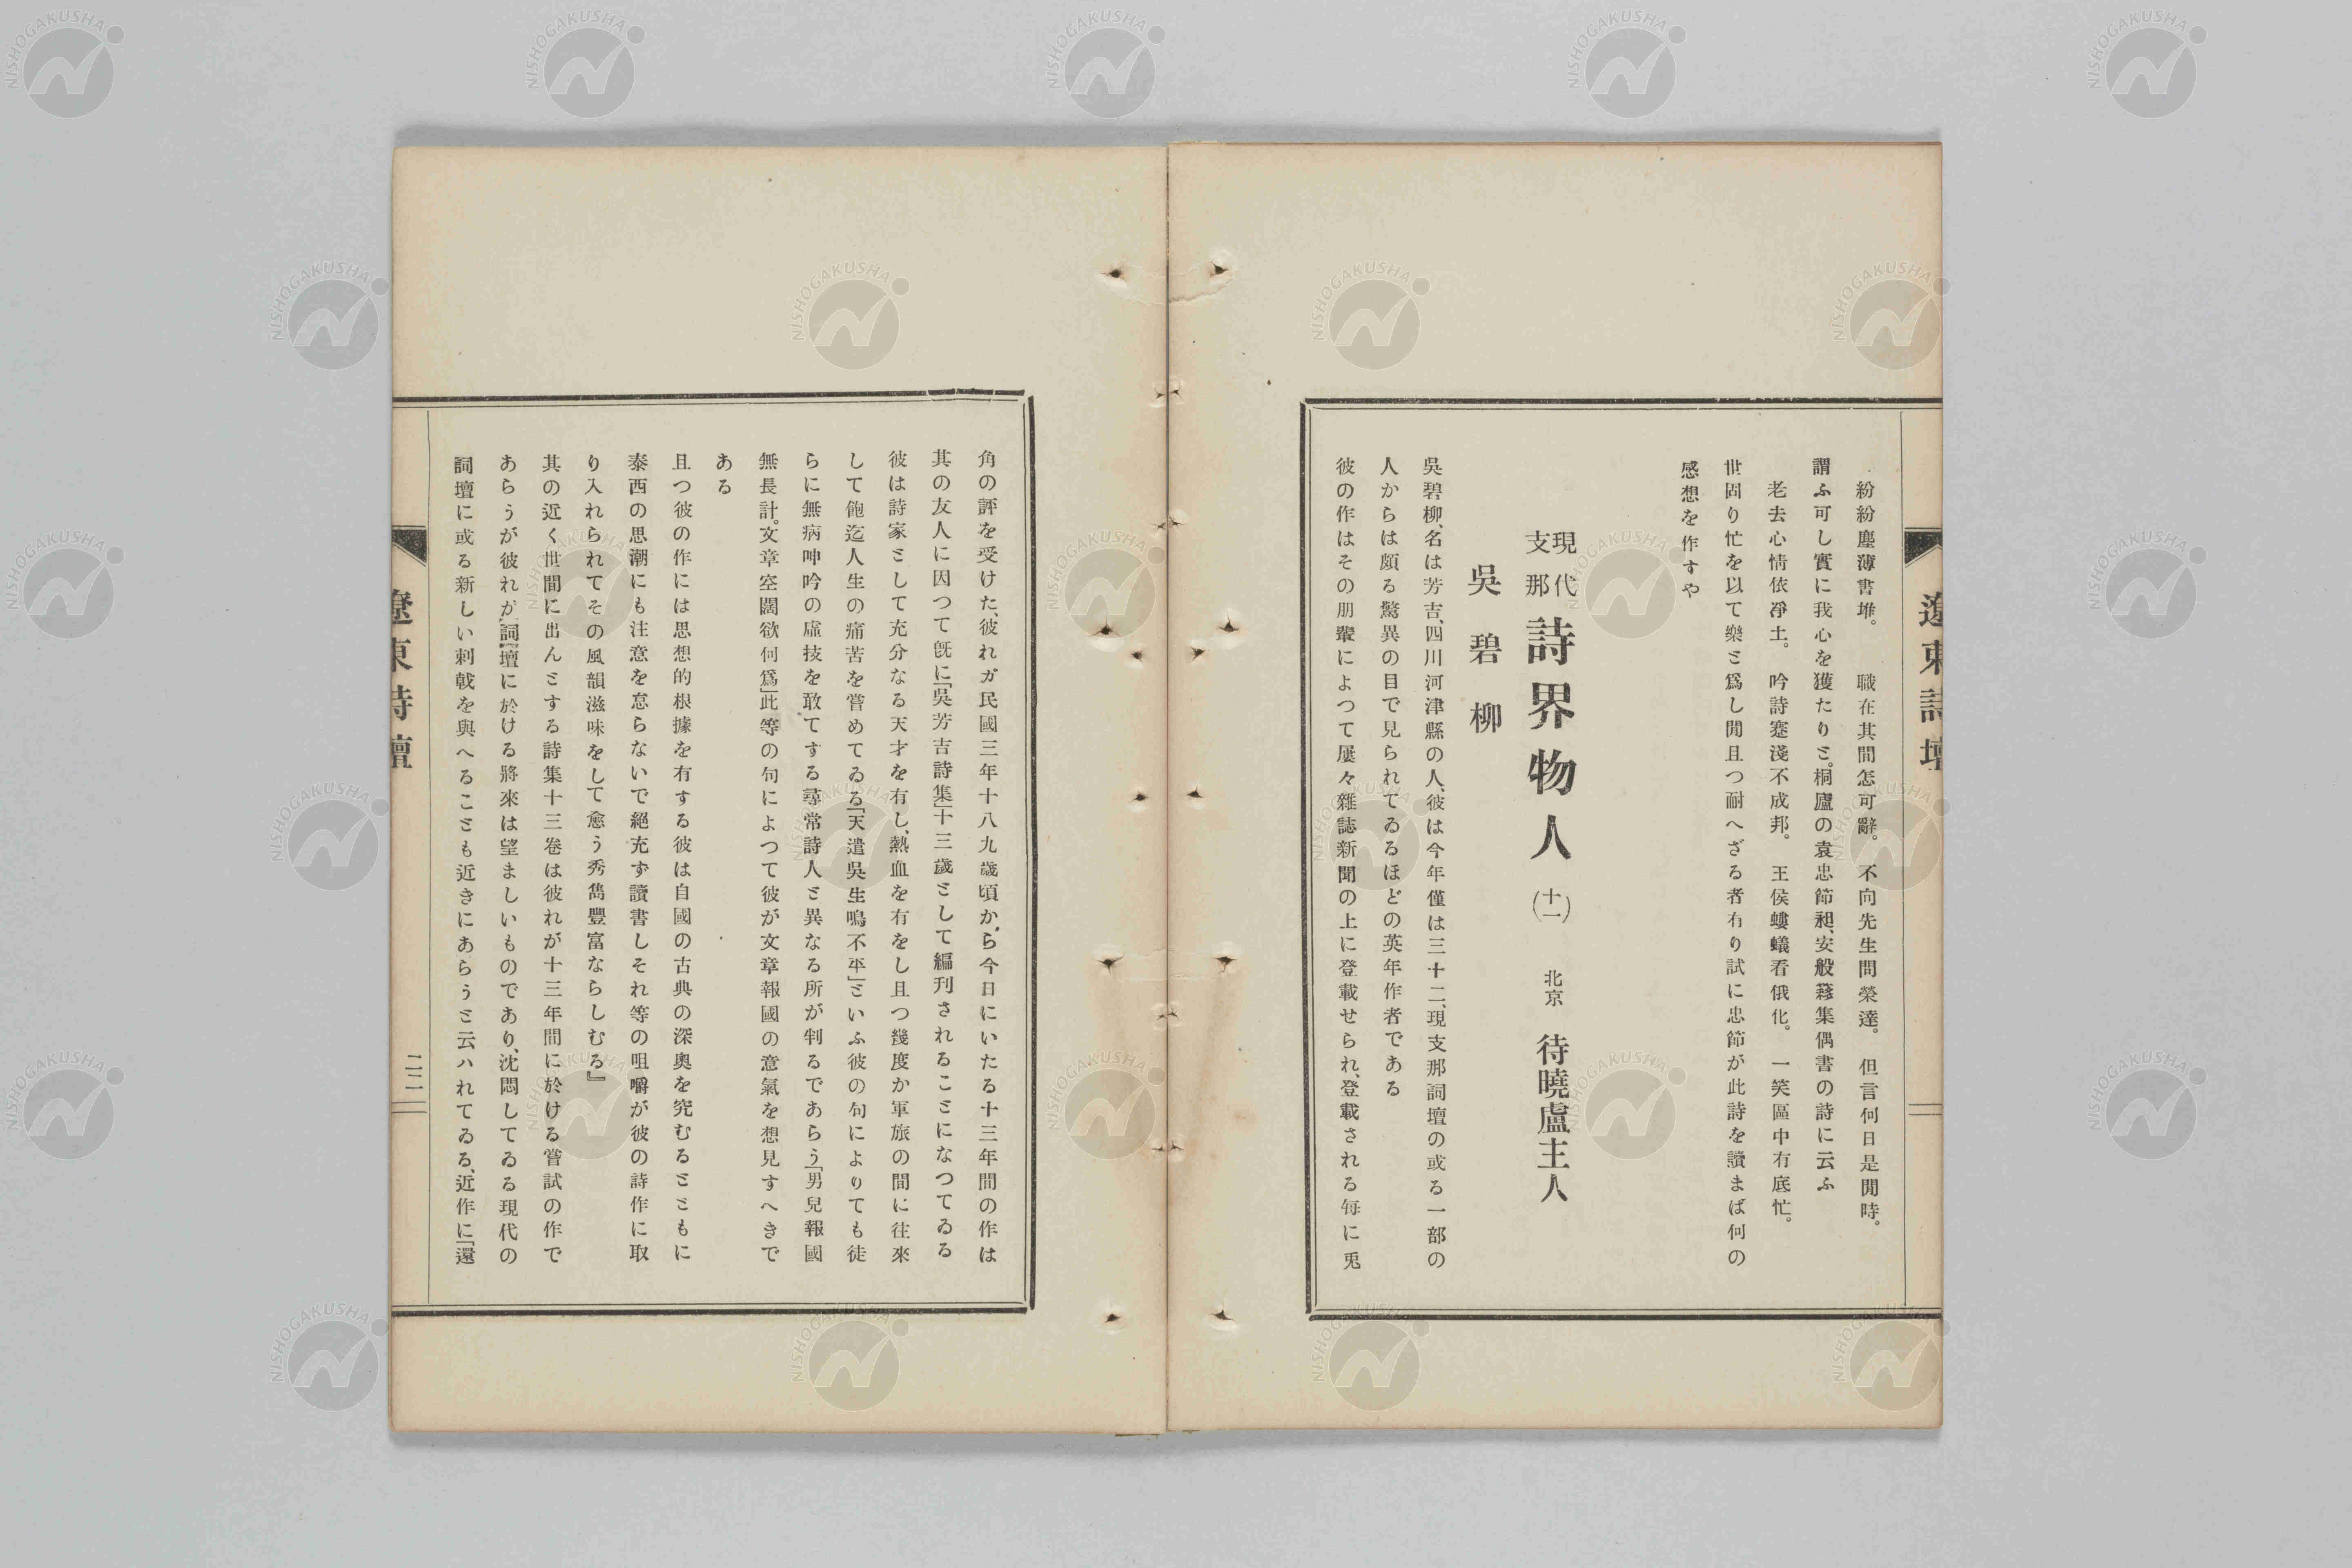 紛紛塵薄書堆。　職在其間怎可辭。　不向先生問榮達。　但言何日是閒時。
謂ふ可し實に我心を獲たりと。桐廬の袁忠節昶、安般簃集偶書の詩に云ふ
老去心情依淨土。　吟詩蹇淺不成邦。　王侯螻蟻看俄化。　一笑區中有底忙。
世固り忙を以て樂と爲し閒且つ耐へざる者有り試に忠節が此詩を讀まば何の
感想を作すや
現代支那詩界物人(十一)　北京　待曉盧主人
吳碧柳
吳碧柳、名は芳吉、四川河津縣の人、彼は今年僅は三十二、現支那詞壇の或る一部の
人からは頗る驚異の目で見られてゐるほどの英年作者である
彼の作はその朋輩によつて屢々雜誌新聞の上に登載せられ、登載される每に兎
角の評を受けた、彼れガ民國三年十八九歲頃か、ら今日にいたる十三年間の作は
其の友人に因つて既に「吳芳吉詩集」十三歲として編刊されることになつてゐる
彼は詩家として充分なる天才を有し、熱血を有をし且つ幾度か軍旅の間に往來
して飽迄人生の痛苦を嘗めてゐる「天遣吳生鳴不平」といふ彼の句によりても徒
らに無病呻吟の虛技を敢てする尋常詩人と異なる所が判るであらう「男兒報國
無長計。文章空闊欲何爲」此等の句によつて彼が文章報國の意氣を想見すへきで
ある
且つ彼の作には思想的根據を有する彼は自國の古典の深奧を究むるとともに
泰西の思潮にも注意を怠らないで絕充ず讀書しそれ等の咀嚼が彼の詩作に取
り入れられてその風韻滋味をして愈う秀雋豐富ならしむる』
其の近く世間に出んとする詩集十三卷は彼れが十三年間に於ける嘗試の作で
あらうが彼れが詞壇に於ける將來は望ましいものであり、沈悶してゐる現代の
詞壇に或る新しい刺戟を與へることも近きにあらうと云ハれてゐる、近作に「還
遼東詩壇
二二
遼東詩壇